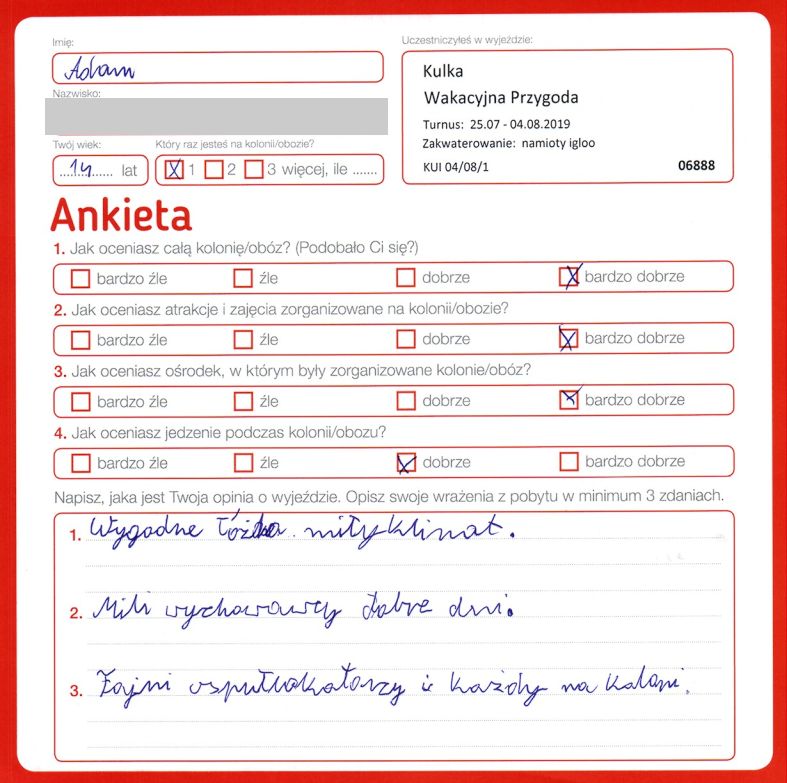 Imię:
Adam
Nazwisko:
Twój wiek:
14 lat
Który raz jesteś na kolonii/obozie?
X 1 2 3 więcej, ile .......
Uczestniczyłeś w wyjeździe:
Kulka
Wakacyjna Przygoda
Turnus: 25.07 - 04.08.2019
Zakwaterowanie: namioty igloo
KUI 04/08/1 06888
Ankieta
1. Jak oceniasz całą kolonię/obóz? (Podobało Ci się?)
bardzo źle źle dobrze X bardzo dobrze
2. Jak oceniasz atrakcje i zajęcia zorganizowane na kolonii/obozie?
bardzo źle źle dobrze X bardzo dobrze
3. Jak oceniasz ośrodek, w którym były zorganizowane kolonie/obóz?
bardzo źle źle dobrze X bardzo dobrze
4. Jak oceniasz jedzenie podczas kolonii/obozu?
bardzo źle źle X dobrze bardzo dobrze
Napisz, jaka jest Twoja opinia o wyjeździe. Opisz swoje wrażenia z pobytu w minimum 3 zdaniach.
1. Wygodne łóżka. miły klinat.
2. Mili wychowawcy dobre dni.
3. Fajni wspułlokatorzy i każdy na koloni.